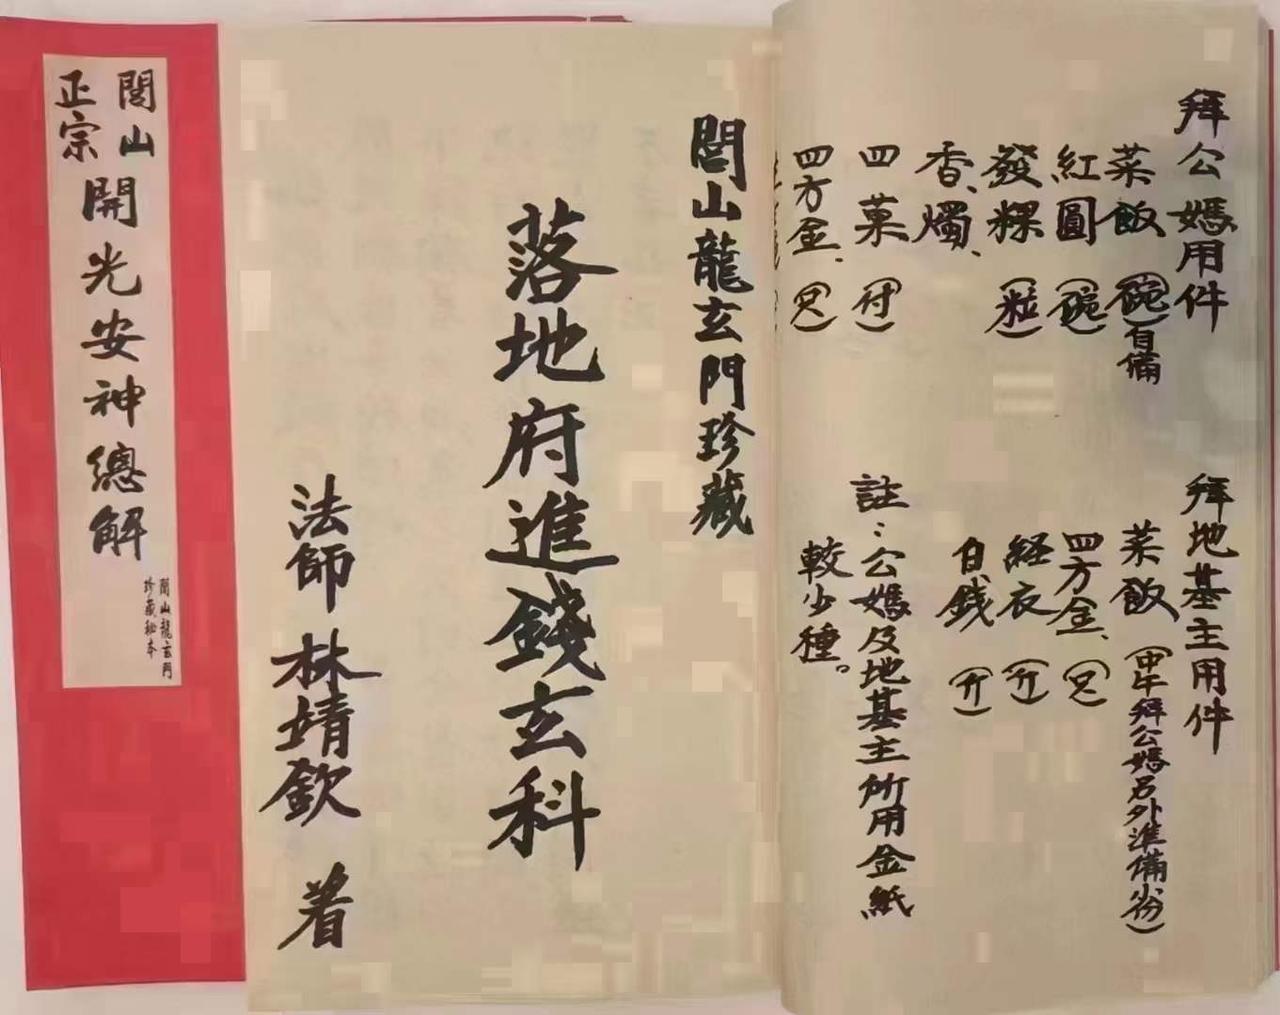 閭山
正宗
開光安神總解
閭山龍玄門
珍藏秘本
閭山龍玄門珍藏
落地府進錢玄科
法師 林靖欽 着
拜公媽用件
菜飯(碗)自備
紅圓(碗)
發粿(粒)
香、燭、
四菓(付)
四方金、(只)
拜地基主用件
菜飯(中午拜公媽另外準備份)
四方金、(只)
経衣(斤)
白錢(斤)
註:公媽及地基主所用金紙
較少種。